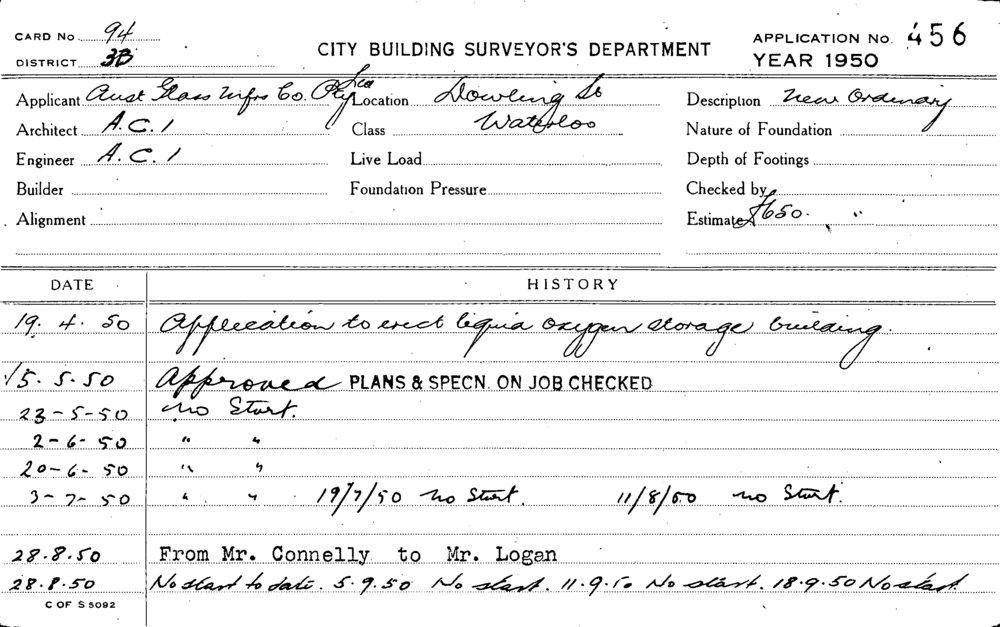 CARD No 94
DISTRICT 3B
CITY BUILDING SURVEYOR'S DEPARTMENT
APPLICATION No. 456
YEAR 1950
Applicant Aust Glass Mfrs Co. Pty Ltd
Location Dowling St
Description New Ordinary
Architect A.C.I
Class Waterloo
Nature of Foundation
Engineer A.C.I
Live Load
Depth of Footings
Builder
Foundation Pressure
Checked by
Alignment
Estimate £650. "
DATE HISTORY
19. 4. 50 Application to erect liquid oxygen storage building.
15. 5. 50 Approved PLANS & SPECN. ON JOB CHECKED
23-5-50 no Start.
2-6-50 " "
20-6-50 " "
3-7-50 " " 19/7/50 no Start. 11/8/50 no Start.
28.8.50 From Mr. Connelly to Mr. Logan
28.8.50 No start to date. 5.9.50 No start. 11.9.50 No start. 18.9.50 No start.
C OF S 5092